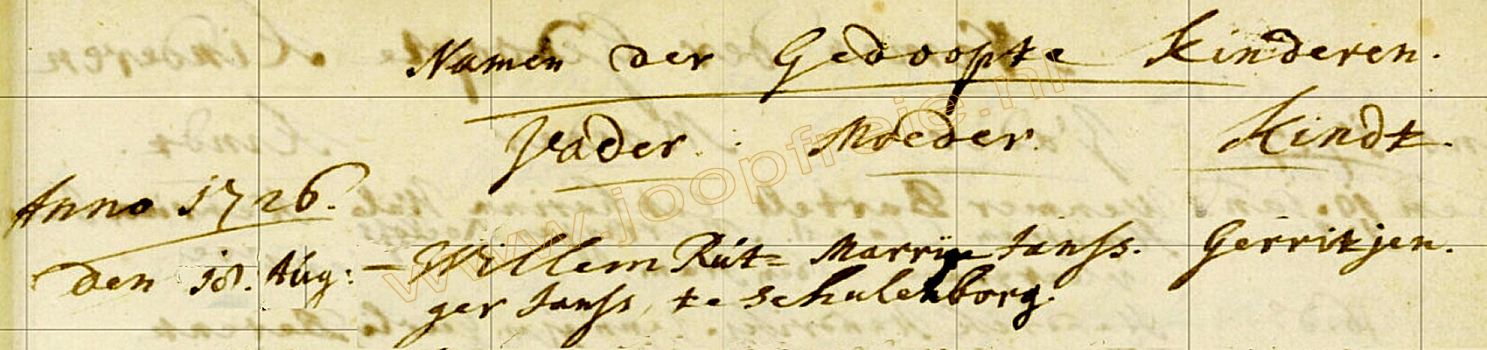 Namen der Gedoopte Kinderen.
Vader. Moeder. Kindt.
Anno 1726.
den 18. Aug: - Willem Rüt= Marrÿe Janss. Gerritjen.
ger Janss, te Schulenborg.
www.joopfreie.nl